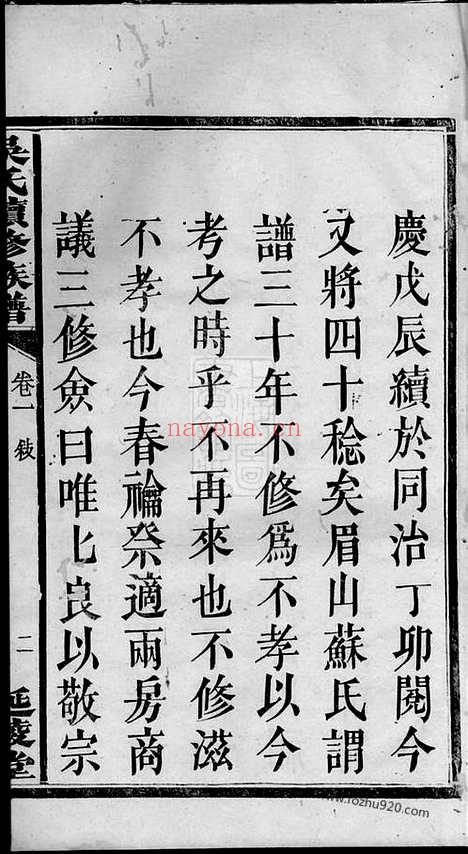 慶戊辰續於同治丁卯閱今
又將四十稔矣眉山蘇氏謂
譜三十年不修為不孝以今
考之時乎不再來也不修滋
不孝也今春禴祭適兩房商
議三修僉曰唯匕良以敬宗
吳氏續修族譜
卷一 敍
二
延陵堂
nayona.cn
www.lozhu920.com